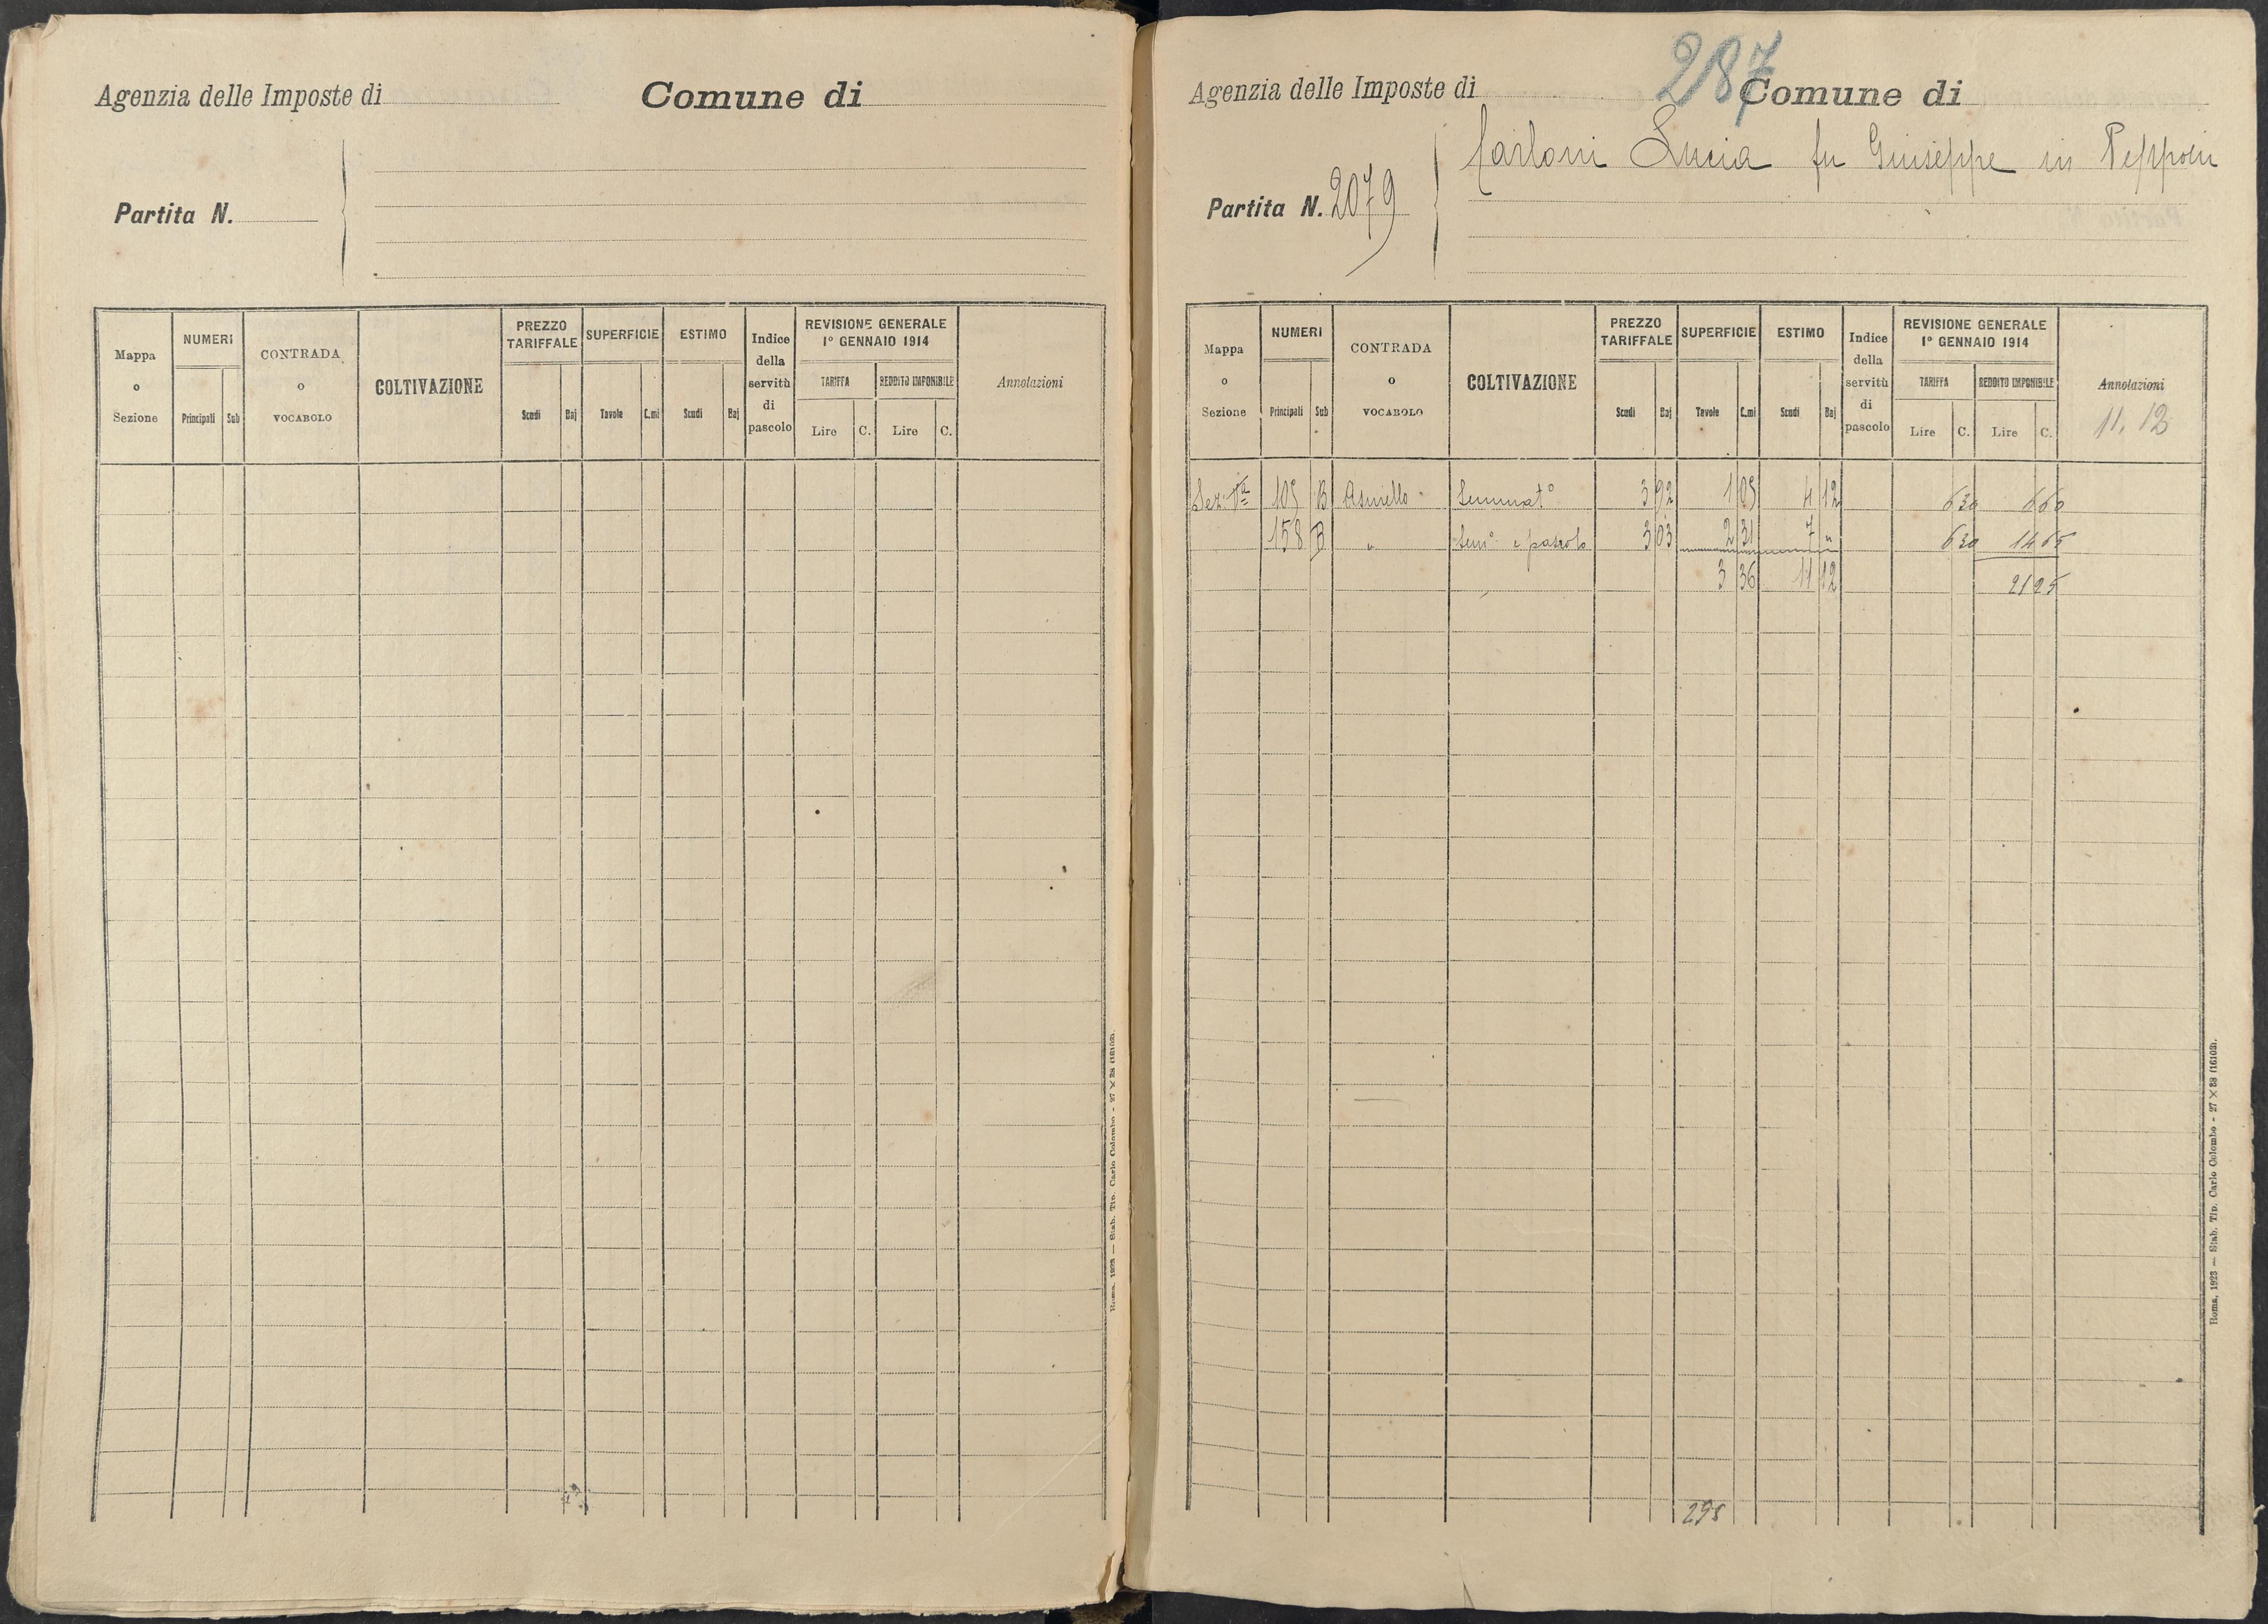 Agenzia delle Imposte di Comune di
Partita N.
Mappa o Sezione NUMERI Principali Sub CONTRADA o VOCABOLO COLTIVAZIONE PREZZO TARIFFALE Scudi Baj SUPERFICIE Tavole C.mi ESTIMO Scudi Baj Indice della servitù di pascolo REVISIONE GENERALE 1° GENNAIO 1914 TARIFFA Lire C. REDDITO IMPONIBILE Lire C. Annotazioni
Roma, 1923 — Stab. Tip. Carlo Colombo - 27 × 38 (16103).
287
Agenzia delle Imposte di Comune di
Carloni Lucia fu Giuseppe in
Partita N. 2079
Mappa o Sezione NUMERI Principali Sub CONTRADA o VOCABOLO COLTIVAZIONE PREZZO TARIFFALE Scudi Baj SUPERFICIE Tavole C.mi ESTIMO Scudi Baj Indice della servitù di pascolo REVISIONE GENERALE 1° GENNAIO 1914 TARIFFA Lire C. REDDITO IMPONIBILE Lire C. Annotazioni
11. 12
Sez. Va 105 B Asinello Seminat° 3 92 1 05 4 12 6 30 6 60
158 B " Sem° e pascolo 3 03 2 31 7 " 6 30 14 65
3 36 11 12 21 25
298
Roma, 1923 — Stab. Tip. Carlo Colombo - 27 × 38 (16103).